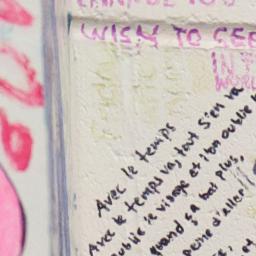 CHANGE YOU
WISH TO SEE
IN T
WORL
Avec le temps
Avec le temps va, tout s'en va
oublie le visage et l'on oublie l
quand ça bat plus,
peine d'aller